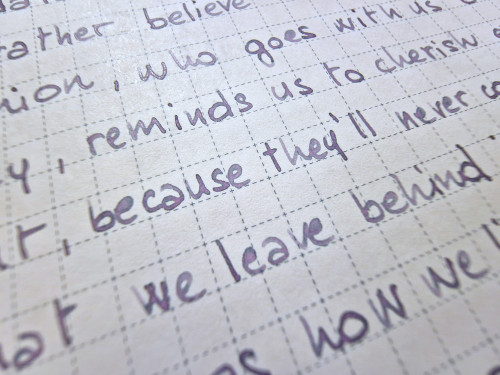 rather believe
nion, who goes with us
y, reminds us to cherish
because they'll never
we leave behind
how we